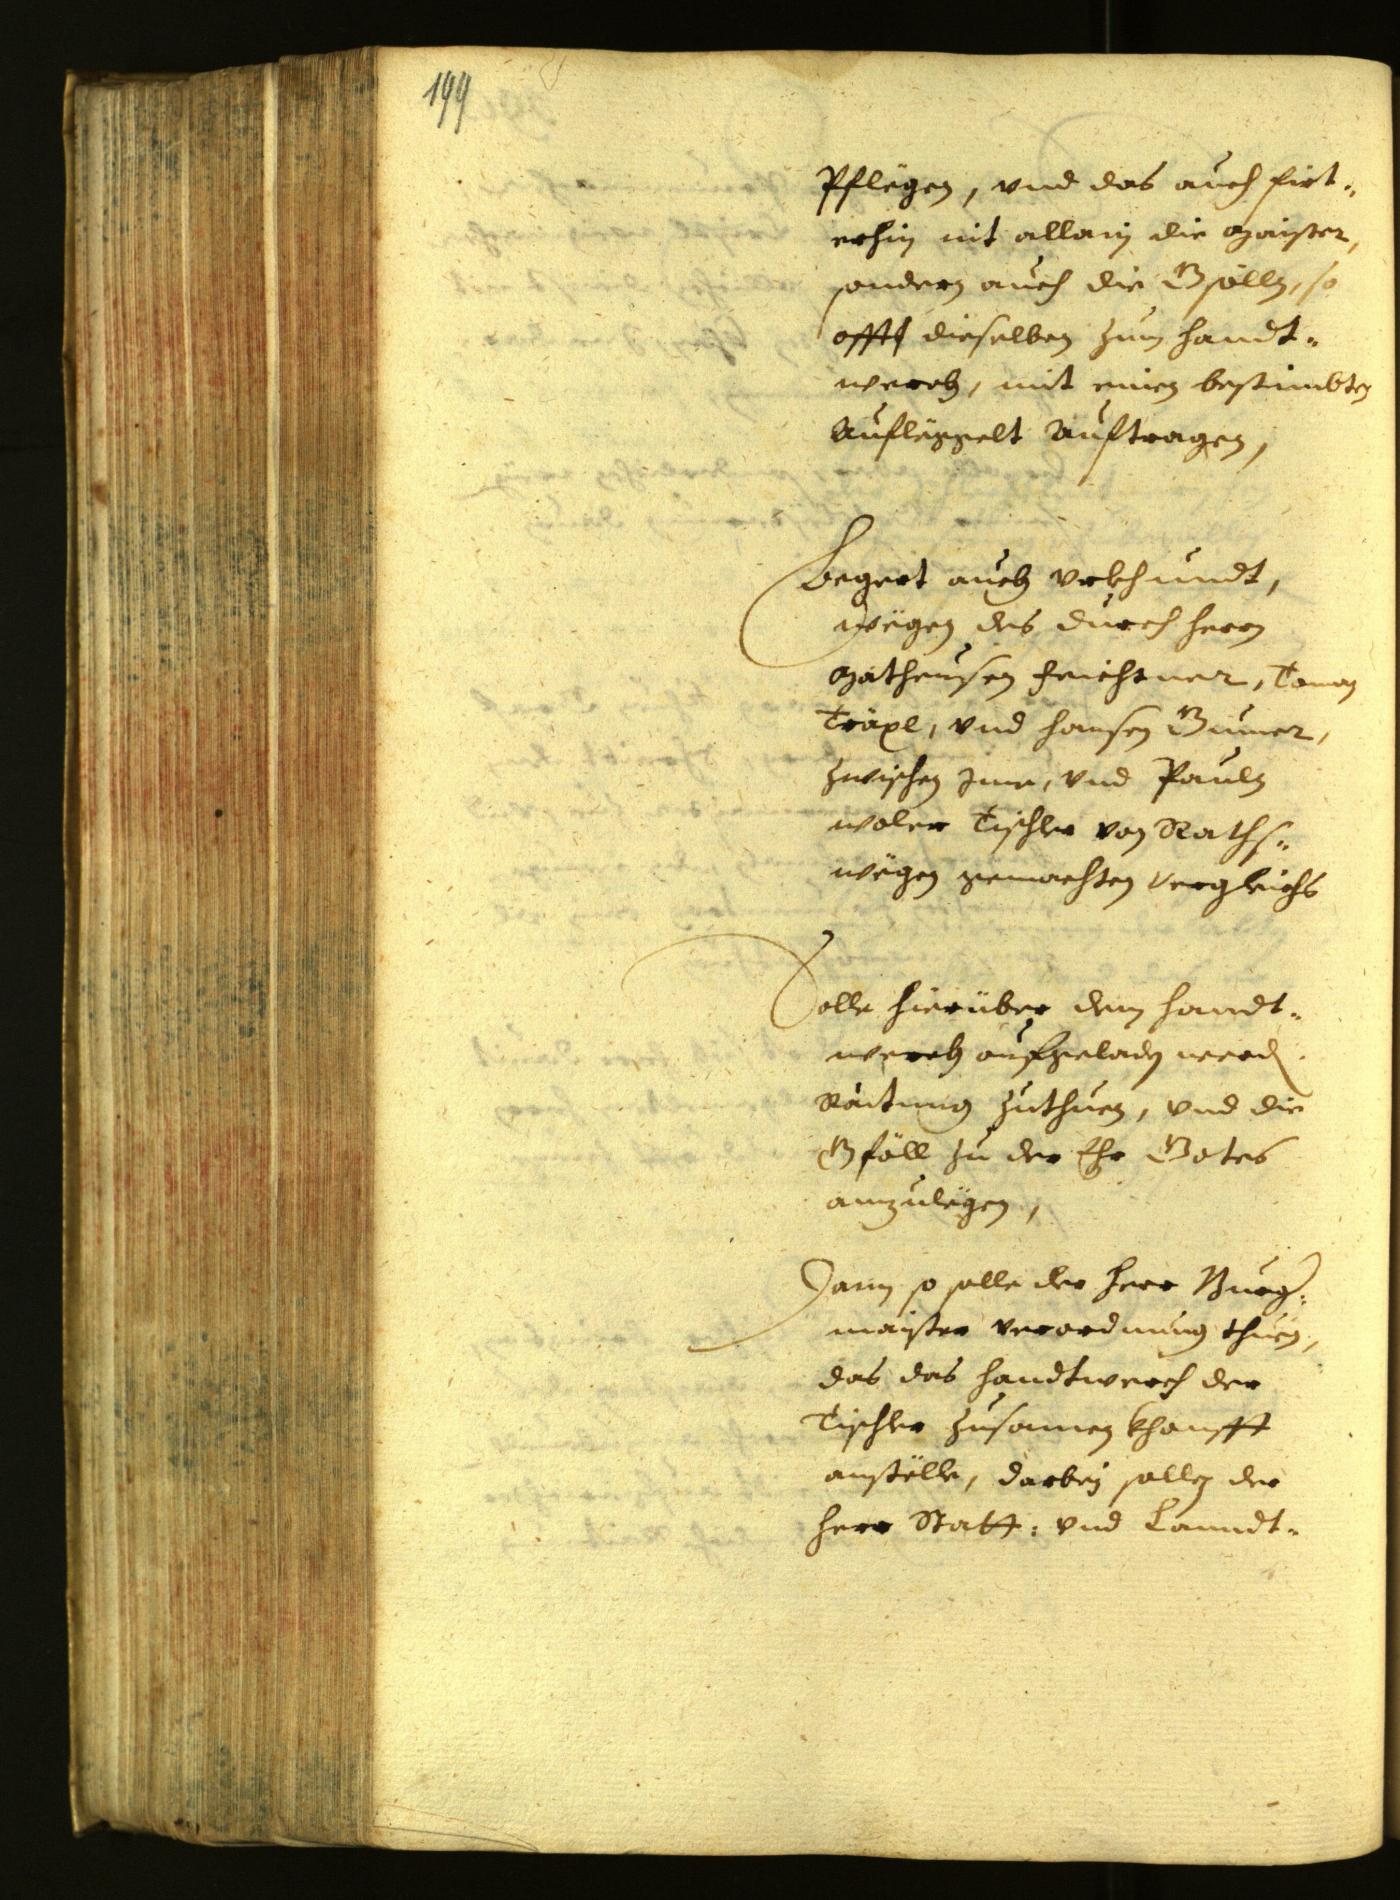 199
Pflegen, vnd das auch firt„
erhin nit allain die Maister,
sondern auch die Gsölln, so
offt dieselben zum handt„
werch, mit einen bestimbten
Aufleggelt Auftragen,
Begert auch vrkhundt,
wegen des durch herrn
Matheusen Feichtner, Toman
Träxl, vnd hansen Gumer,
zwischen Ime, vnd Pauln
woler Tischler von Raths„
wegen gemachten Vergleichs
Solle hierüber dem handt„
werch aufgeladen werden
Raitung zuthuen, vnd die
Gföll zu der Ehr Gotes
anzulegen,
Dann so solle der herr Burg„
maister verordnung thuen,
das das handtwerch der
Tischler zusamen khonfft
anstelle, darbei sollen der
herr Statt: vnd Lanndt„